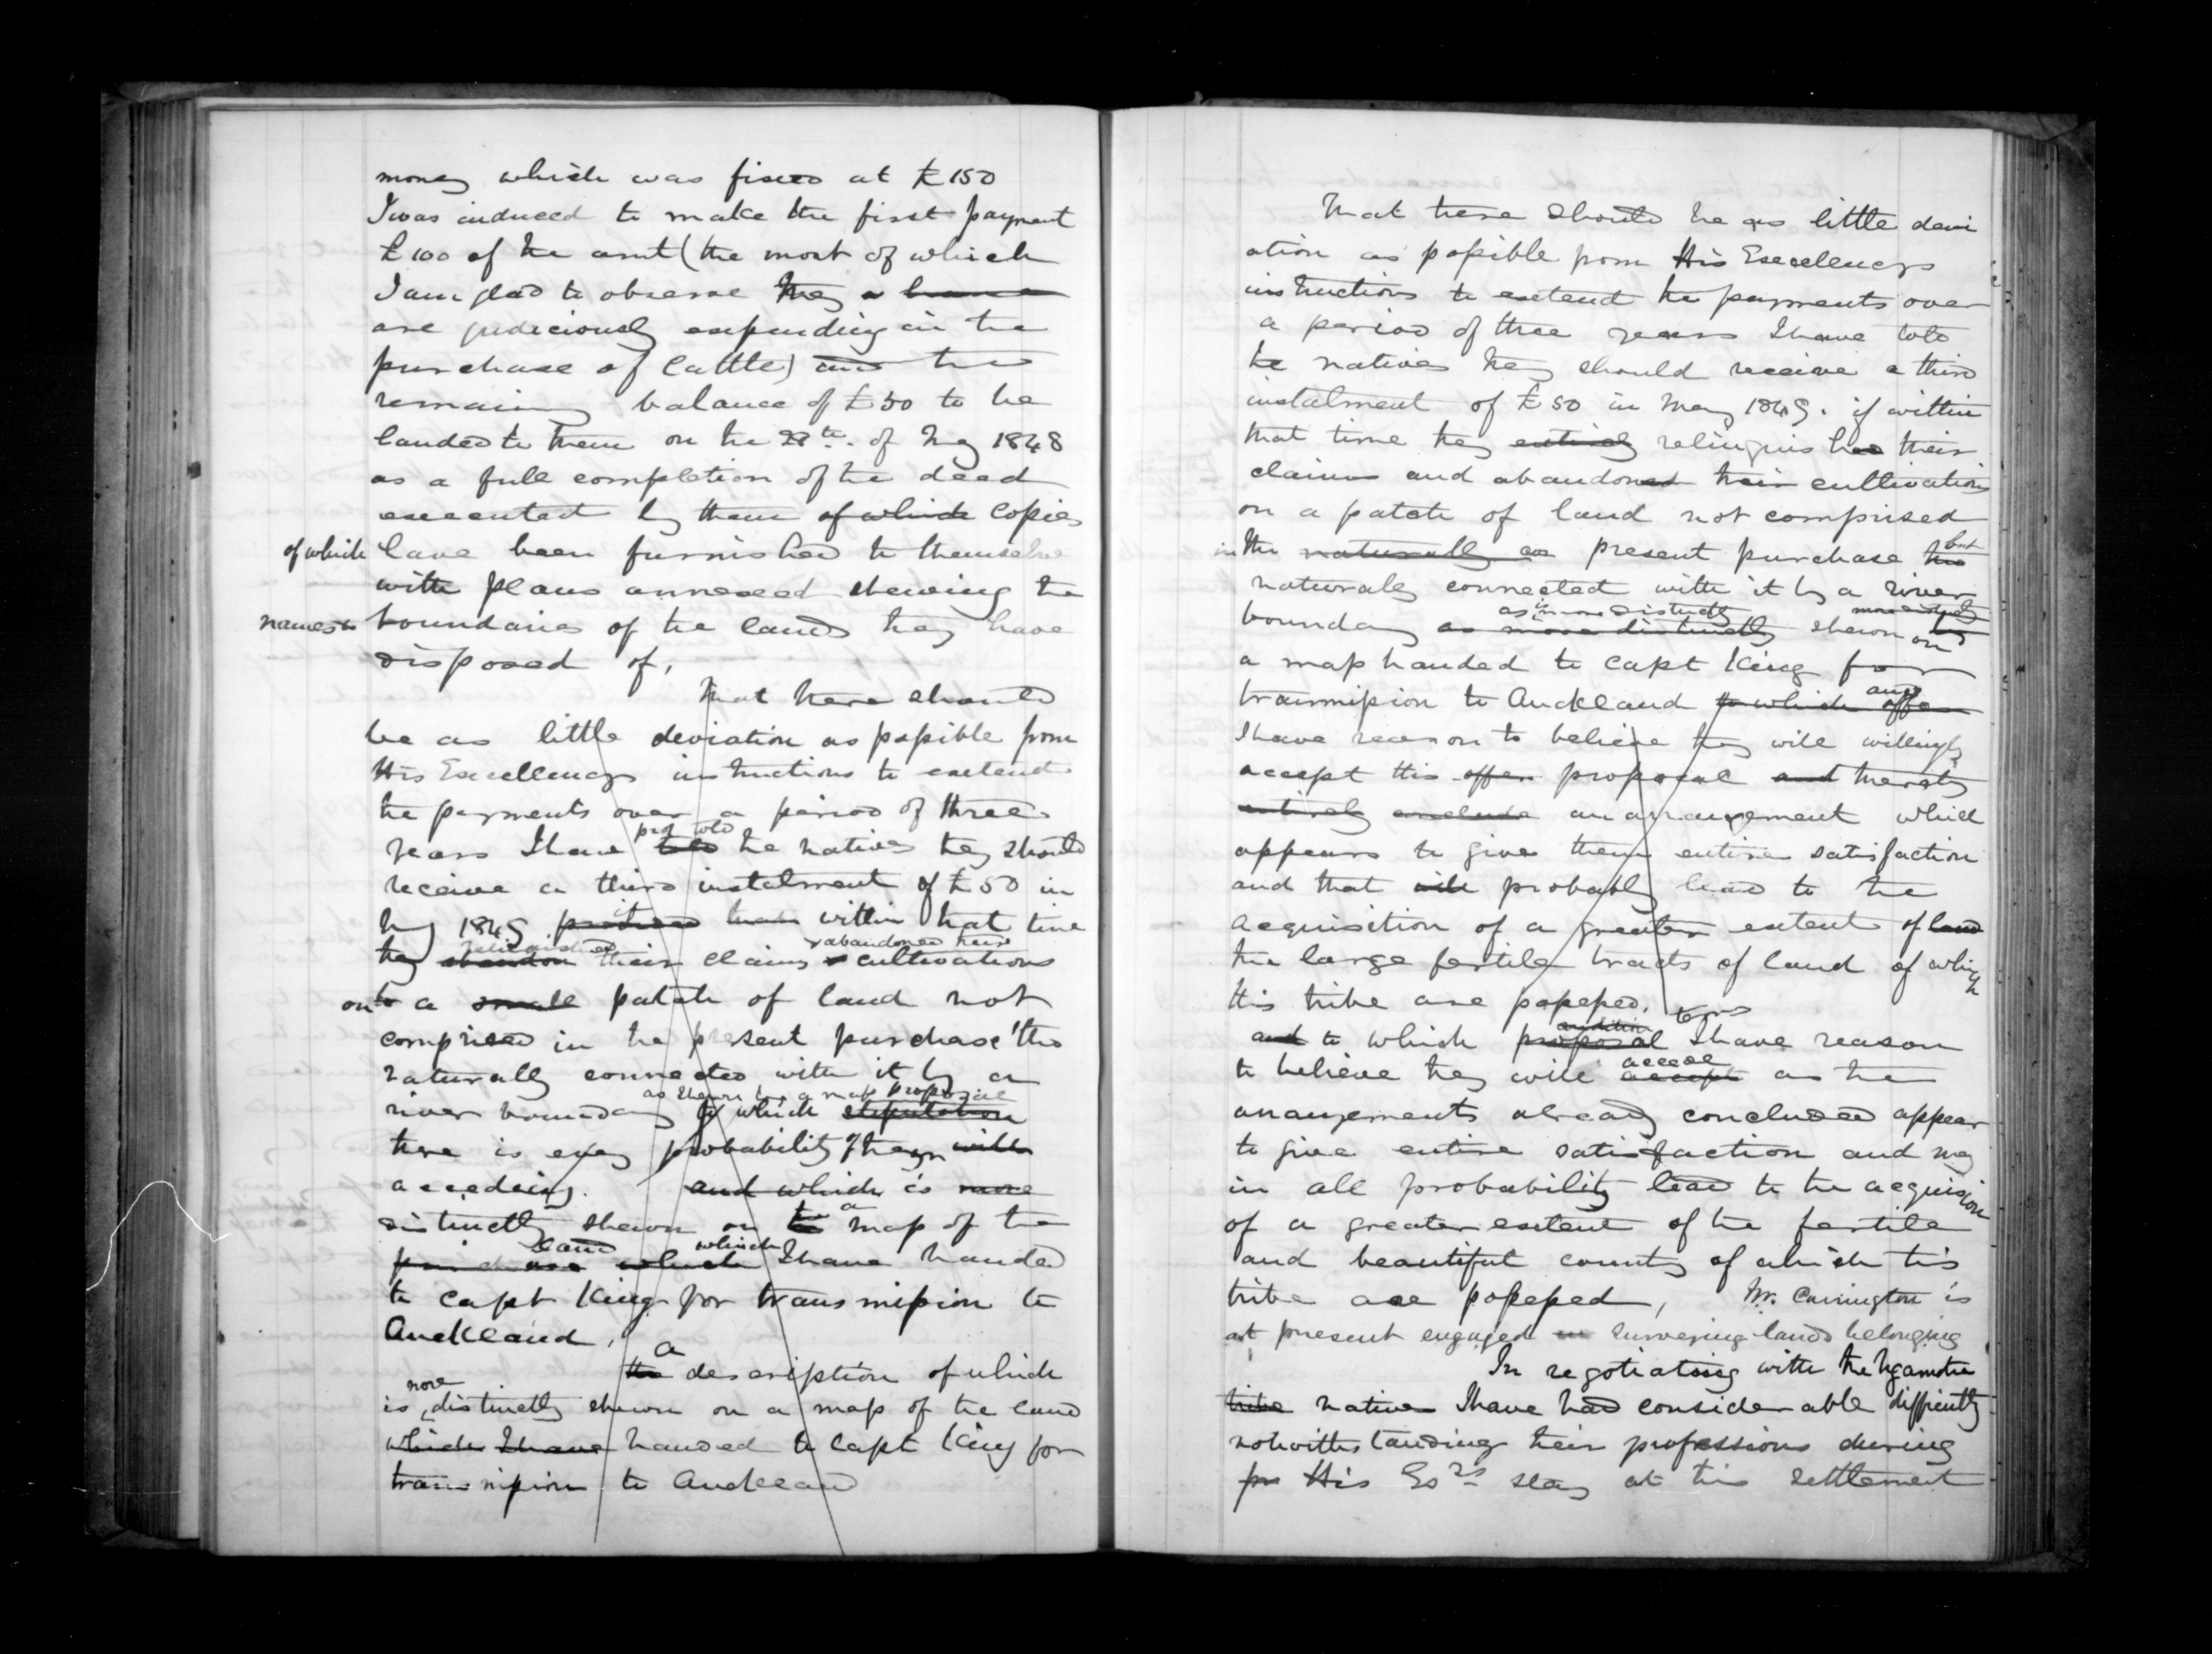 money which was fixed at £150
I was induced to make the first payment
£100 of the amt (the most of which
I am glad to observe they
are judiciously expending in the
purchase of Cattle) and the
remaining balance of £50 to be
handed to them on the 28th. of May 1848
as a full completion of the deed
executed by them of which Copies
of which have been furnished to themselves
with plans annexed shewing the
names & boundaries of the land they have
disposed of,
That there should
be as little deviation as possible from
His Excellencys instructions to extend
the payments over a period of three
told
years I have told the natives they should
receive a third instalment of £50 in
May 1849 provided within that time
relinquished & abandoned their
they abandon their claims & cultivations
on to a small patch of land not
comprised in the present purchase tho
naturally connected with it by a
as shewn by a map proposal
river boundary to which stipulation
there is every probability of their will
acceding. and which is more
a
distinctly shewn on the map of the
land which
purchase which I have handed
to Capt King for transmission to
Auckland,
a
the description of which
more
is distinctly shewn on a map of the land
which I have handed to Capt King for
transmission to Auckland
That there should be as little devi
ation as possible from His Excellencys
instructions to extend the payments over
a period of three years I have told
the natives they should receive a third
instalment of £50 in May 1849. if within
that time they entirely relinquished their
claims and abandoned their cultivations
on a patch of land not comprised
but
in the naturally present purchase tho
naturally connected with it by a river
as is more distinctly more distinctly
boundary as more distinctly shewn on
a map handed to Capt King for
and
transmission to Auckland to which offer
I have reason to believe they will willingly
accept this offer proposal and thereby
entirely conclude an arrangement which
appears to give them entire satisfaction
and that will probably lead to the
acquisition of a greater extent of land
the large fertile tracts of land of which
this tribe are possessed.
condition terms
and to which proposal I have reason
accede
to believe they will accept as the
arrangements already concluded appear
to give entire satisfaction and may
in all probability lead to the acquisition
of a greater extent of the fertile
and beautiful country of which this
tribe are possessed, Mr. Carrington is
at present engaged in surveying lands belonging
In negotiating with the Ngamotu
tribe natives I have had considerable difficulty
notwithstanding their professions during
for His Exys stay at this settlement